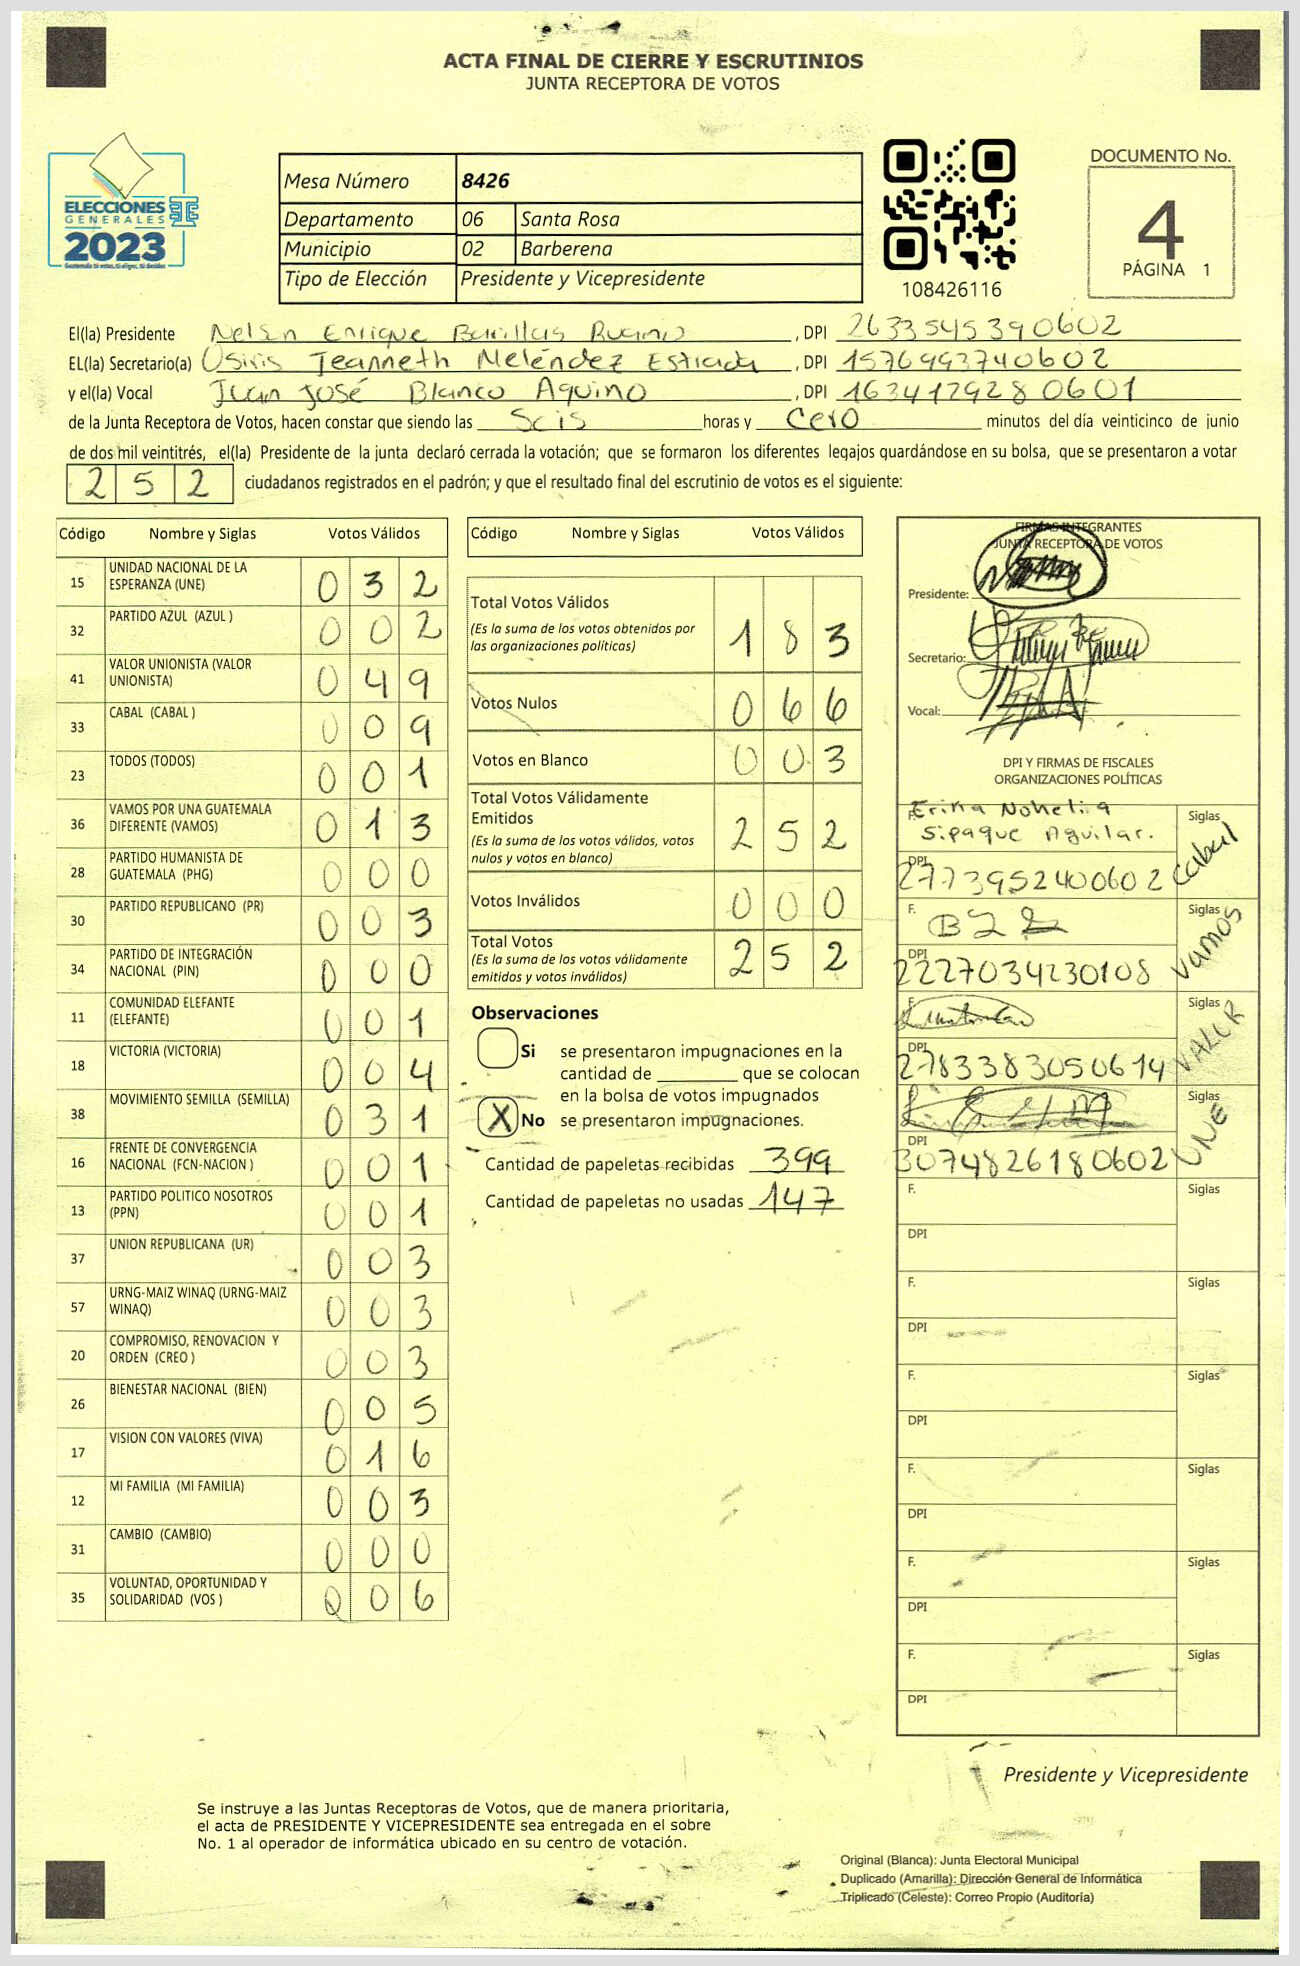 ACTA FINAL DE CIERRE Y ESCRUTINIOS
JUNTA RECEPTORA DE VOTOS
ELECCIONES
GENERALES
2023
Guatemala tú votas, tú eliges, tú decides
Mesa Número 8426
Departamento 06 Santa Rosa
Municipio 02 Barberena
Tipo de Elección Presidente y Vicepresidente
108426116
DOCUMENTO No.
4
PÁGINA 1
El(la) Presidente Nelsn Enrique Barillas Ruano, DPI 2633545390602
EL(la) Secretario(a) Osiris Jeanneth Meléndez Estrada, DPI 1576993740602
y el(la) Vocal Juan José Blanco Aquino, DPI 1634129280601
de la Junta Receptora de Votos, hacen constar que siendo las Seis horas y Cero minutos del día veinticinco de junio
de dos mil veintitrés, el(la) Presidente de la junta declaró cerrada la votación; que se formaron los diferentes legajos quardándose en su bolsa, que se presentaron a votar
252 ciudadanos registrados en el padrón; y que el resultado final del escrutinio de votos es el siguiente:
Código Nombre y Siglas Votos Válidos
15 UNIDAD NACIONAL DE LA
ESPERANZA (UNE) 032
32 PARTIDO AZUL (AZUL ) 002
41 VALOR UNIONISTA (VALOR
UNIONISTA) 049
33 CABAL (CABAL ) 009
23 TODOS (TODOS) 001
36 VAMOS POR UNA GUATEMALA
DIFERENTE (VAMOS) 013
28 PARTIDO HUMANISTA DE
GUATEMALA (PHG) 000
30 PARTIDO REPUBLICANO (PR) 003
34 PARTIDO DE INTEGRACIÓN
NACIONAL (PIN) 000
11 COMUNIDAD ELEFANTE
(ELEFANTE) 001
18 VICTORIA (VICTORIA) 004
38 MOVIMIENTO SEMILLA (SEMILLA) 031
16 FRENTE DE CONVERGENCIA
NACIONAL (FCN-NACION ) 001
13 PARTIDO POLITICO NOSOTROS
(PPN) 001
37 UNION REPUBLICANA (UR) 003
57 URNG-MAIZ WINAQ (URNG-MAIZ
WINAQ) 003
20 COMPROMISO, RENOVACION Y
ORDEN (CREO ) 003
26 BIENESTAR NACIONAL (BIEN) 005
17 VISION CON VALORES (VIVA) 016
12 MI FAMILIA (MI FAMILIA) 003
31 CAMBIO (CAMBIO) 000
35 VOLUNTAD, OPORTUNIDAD Y
SOLIDARIDAD (VOS ) 006
Código Nombre y Siglas Votos Válidos
Total Votos Válidos 183
(Es la suma de los votos obtenidos por
las organizaciones políticas)
Votos Nulos 066
Votos en Blanco 003
Total Votos Válidamente
Emitidos 252
(Es la suma de los votos válidos, votos
nulos y votos en blanco)
Votos Inválidos 000
Total Votos 252
(Es la suma de los votos válidamente
emitidos y votos inválidos)
Observaciones
Si se presentaron impugnaciones en la
cantidad de ________ que se colocan
en la bolsa de votos impugnados
X No se presentaron impugnaciones.
Cantidad de papeletas recibidas 399
Cantidad de papeletas no usadas 147
FIRMAS INTEGRANTES
JUNTA RECEPTORA DE VOTOS
Presidente:
Secretario:
Vocal:
DPI Y FIRMAS DE FISCALES
ORGANIZACIONES POLÍTICAS
F. Erika Nohelia
Sipaque Aguilar.
Siglas Cabal
DPI 2773952400602
F.
Siglas Vamos
DPI 2227034230108
F.
Siglas VALOR
DPI 2783383050614
Siglas UNE
DPI 3074826180602
F. Siglas
DPI
F. Siglas
DPI
F. Siglas
DPI
F. Siglas
DPI
F. Siglas
DPI
F. Siglas
DPI
Presidente y Vicepresidente
Se instruye a las Juntas Receptoras de Votos, que de manera prioritaria,
el acta de PRESIDENTE Y VICEPRESIDENTE sea entregada en el sobre
No. 1 al operador de informática ubicado en su centro de votación.
Original (Blanca): Junta Electoral Municipal
Duplicado (Amarilla): Dirección General de Informática
Triplicado (Celeste): Correo Propio (Auditoría)